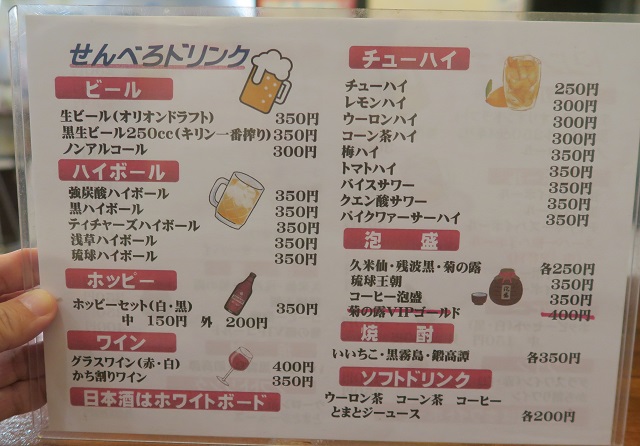 せんべろドリンク
ビール
生ビール(オリオンドラフト) 350円
黒生ビール250cc(キリン一番搾り) 350円
ノンアルコール 300円
ハイボール
強炭酸ハイボール 350円
黒ハイボール 350円
ティチャーズハイボール 350円
浅草ハイボール 350円
琉球ハイボール 350円
ホッピー
ホッピーセット(白・黒) 350円
中 150円 外 200円
ワイン
グラスワイン(赤・白) 400円
かち割りワイン 350円
日本酒はホワイトボード
チューハイ
チューハイ 250円
レモンハイ 300円
ウーロンハイ 300円
コーン茶ハイ 300円
梅ハイ 350円
トマトハイ 350円
バイスサワー 350円
クエン酸サワー 350円
バイクワァーサーハイ 350円
泡盛
久米仙・残波黒・菊の露 各250円
琉球王朝 350円
コーヒー泡盛 350円
菊の露VIPゴールド 400円
焼酎
いいちこ・黒霧島・鍛高譚 各350円
ソフトドリンク
ウーロン茶 コーン茶 コーヒー
とまとジーュース 各200円